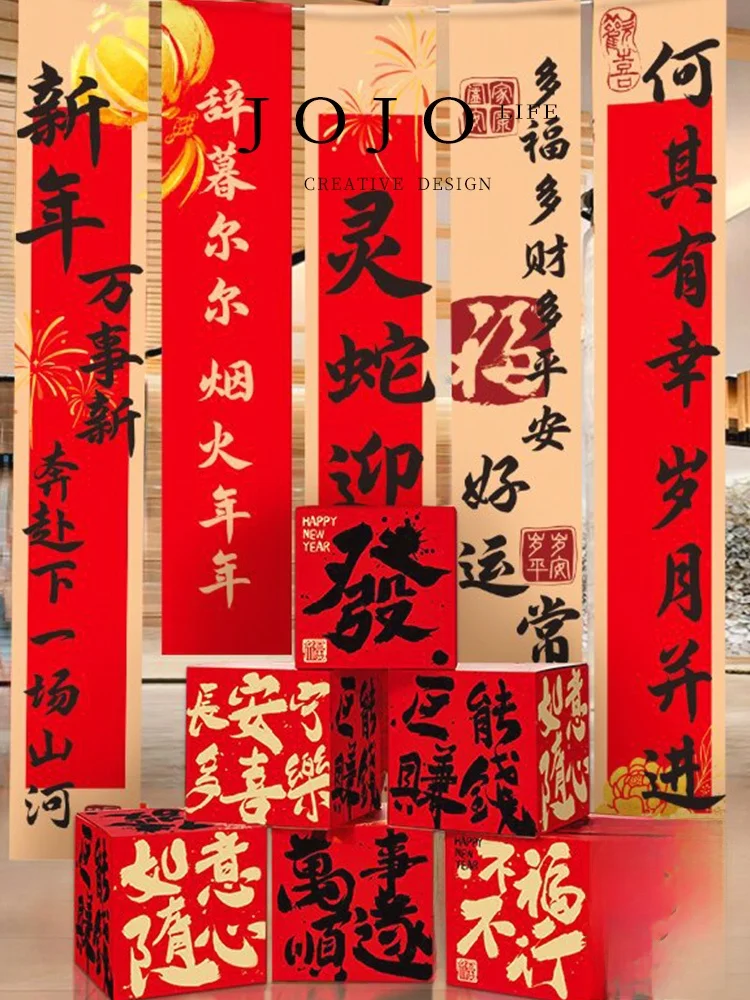 JOJO LIFE
CREATIVE DESIGN
新年
万事新
奔赴下一场山河
辞暮尔尔 烟火年年
灵蛇迎
多福多财多平安
好运常
福
岁岁平安
何其有幸 岁月并进
HAPPY
NEW
YEAR
發
長安宁
多喜樂
巨能
賺錢
巨能
賺錢
如意
隨心
巨能
賺錢
如意
隨心
萬事
順遂
HAPPY
NEW
YEAR
不福
不行